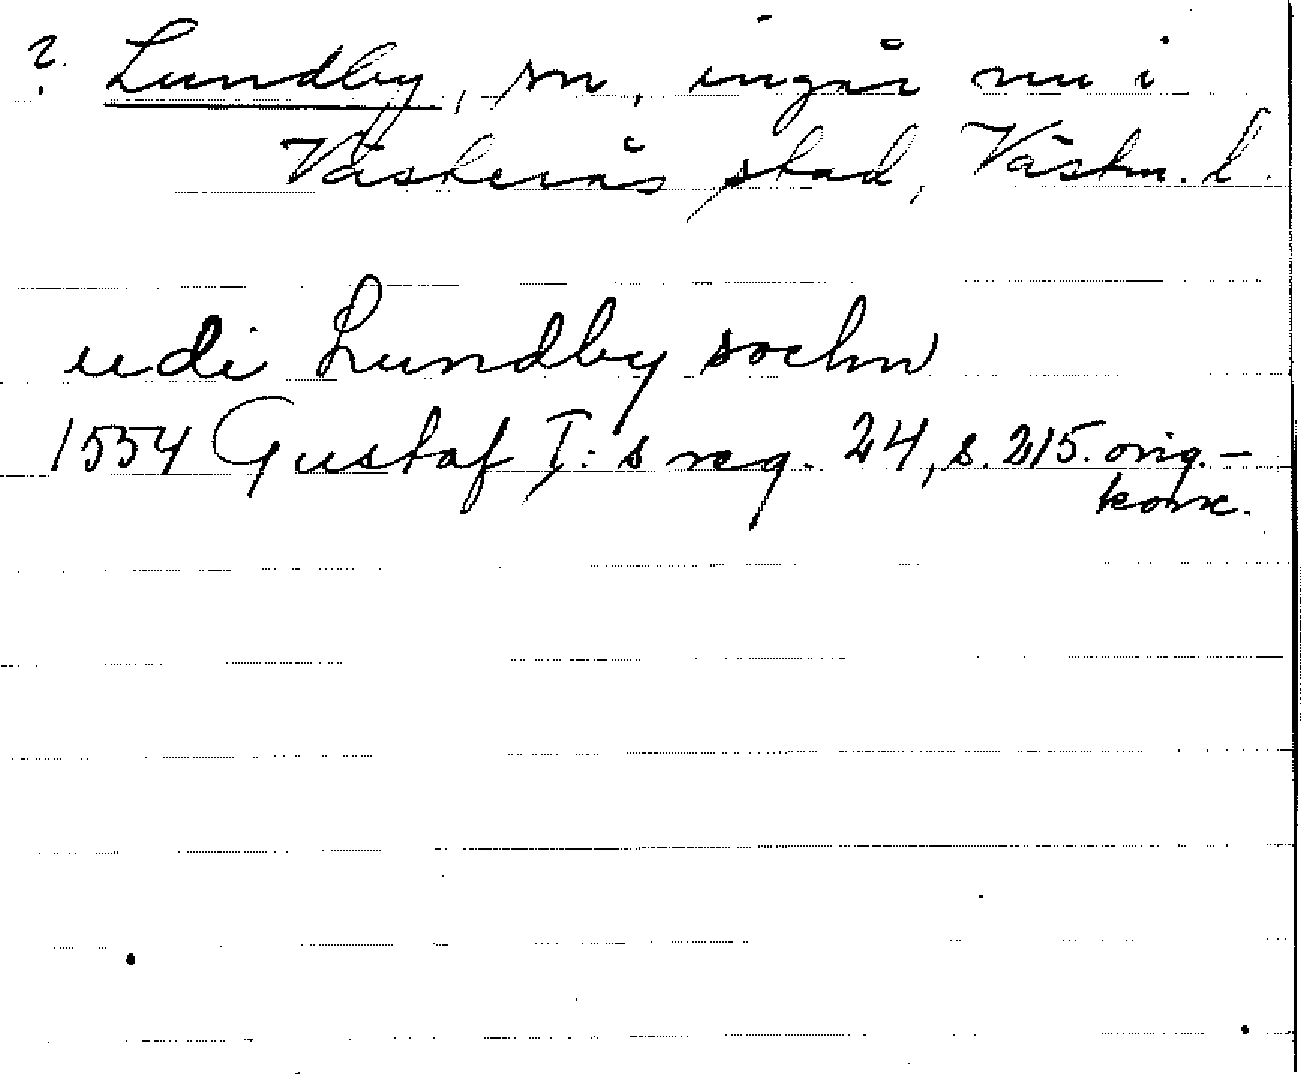 ? Lundby, sn, ingår nu i
Västerås stad, Västm. l.
udi Lundby sochn
1554 Gustaf I:s reg. 24, s. 215. orig.-
konc.